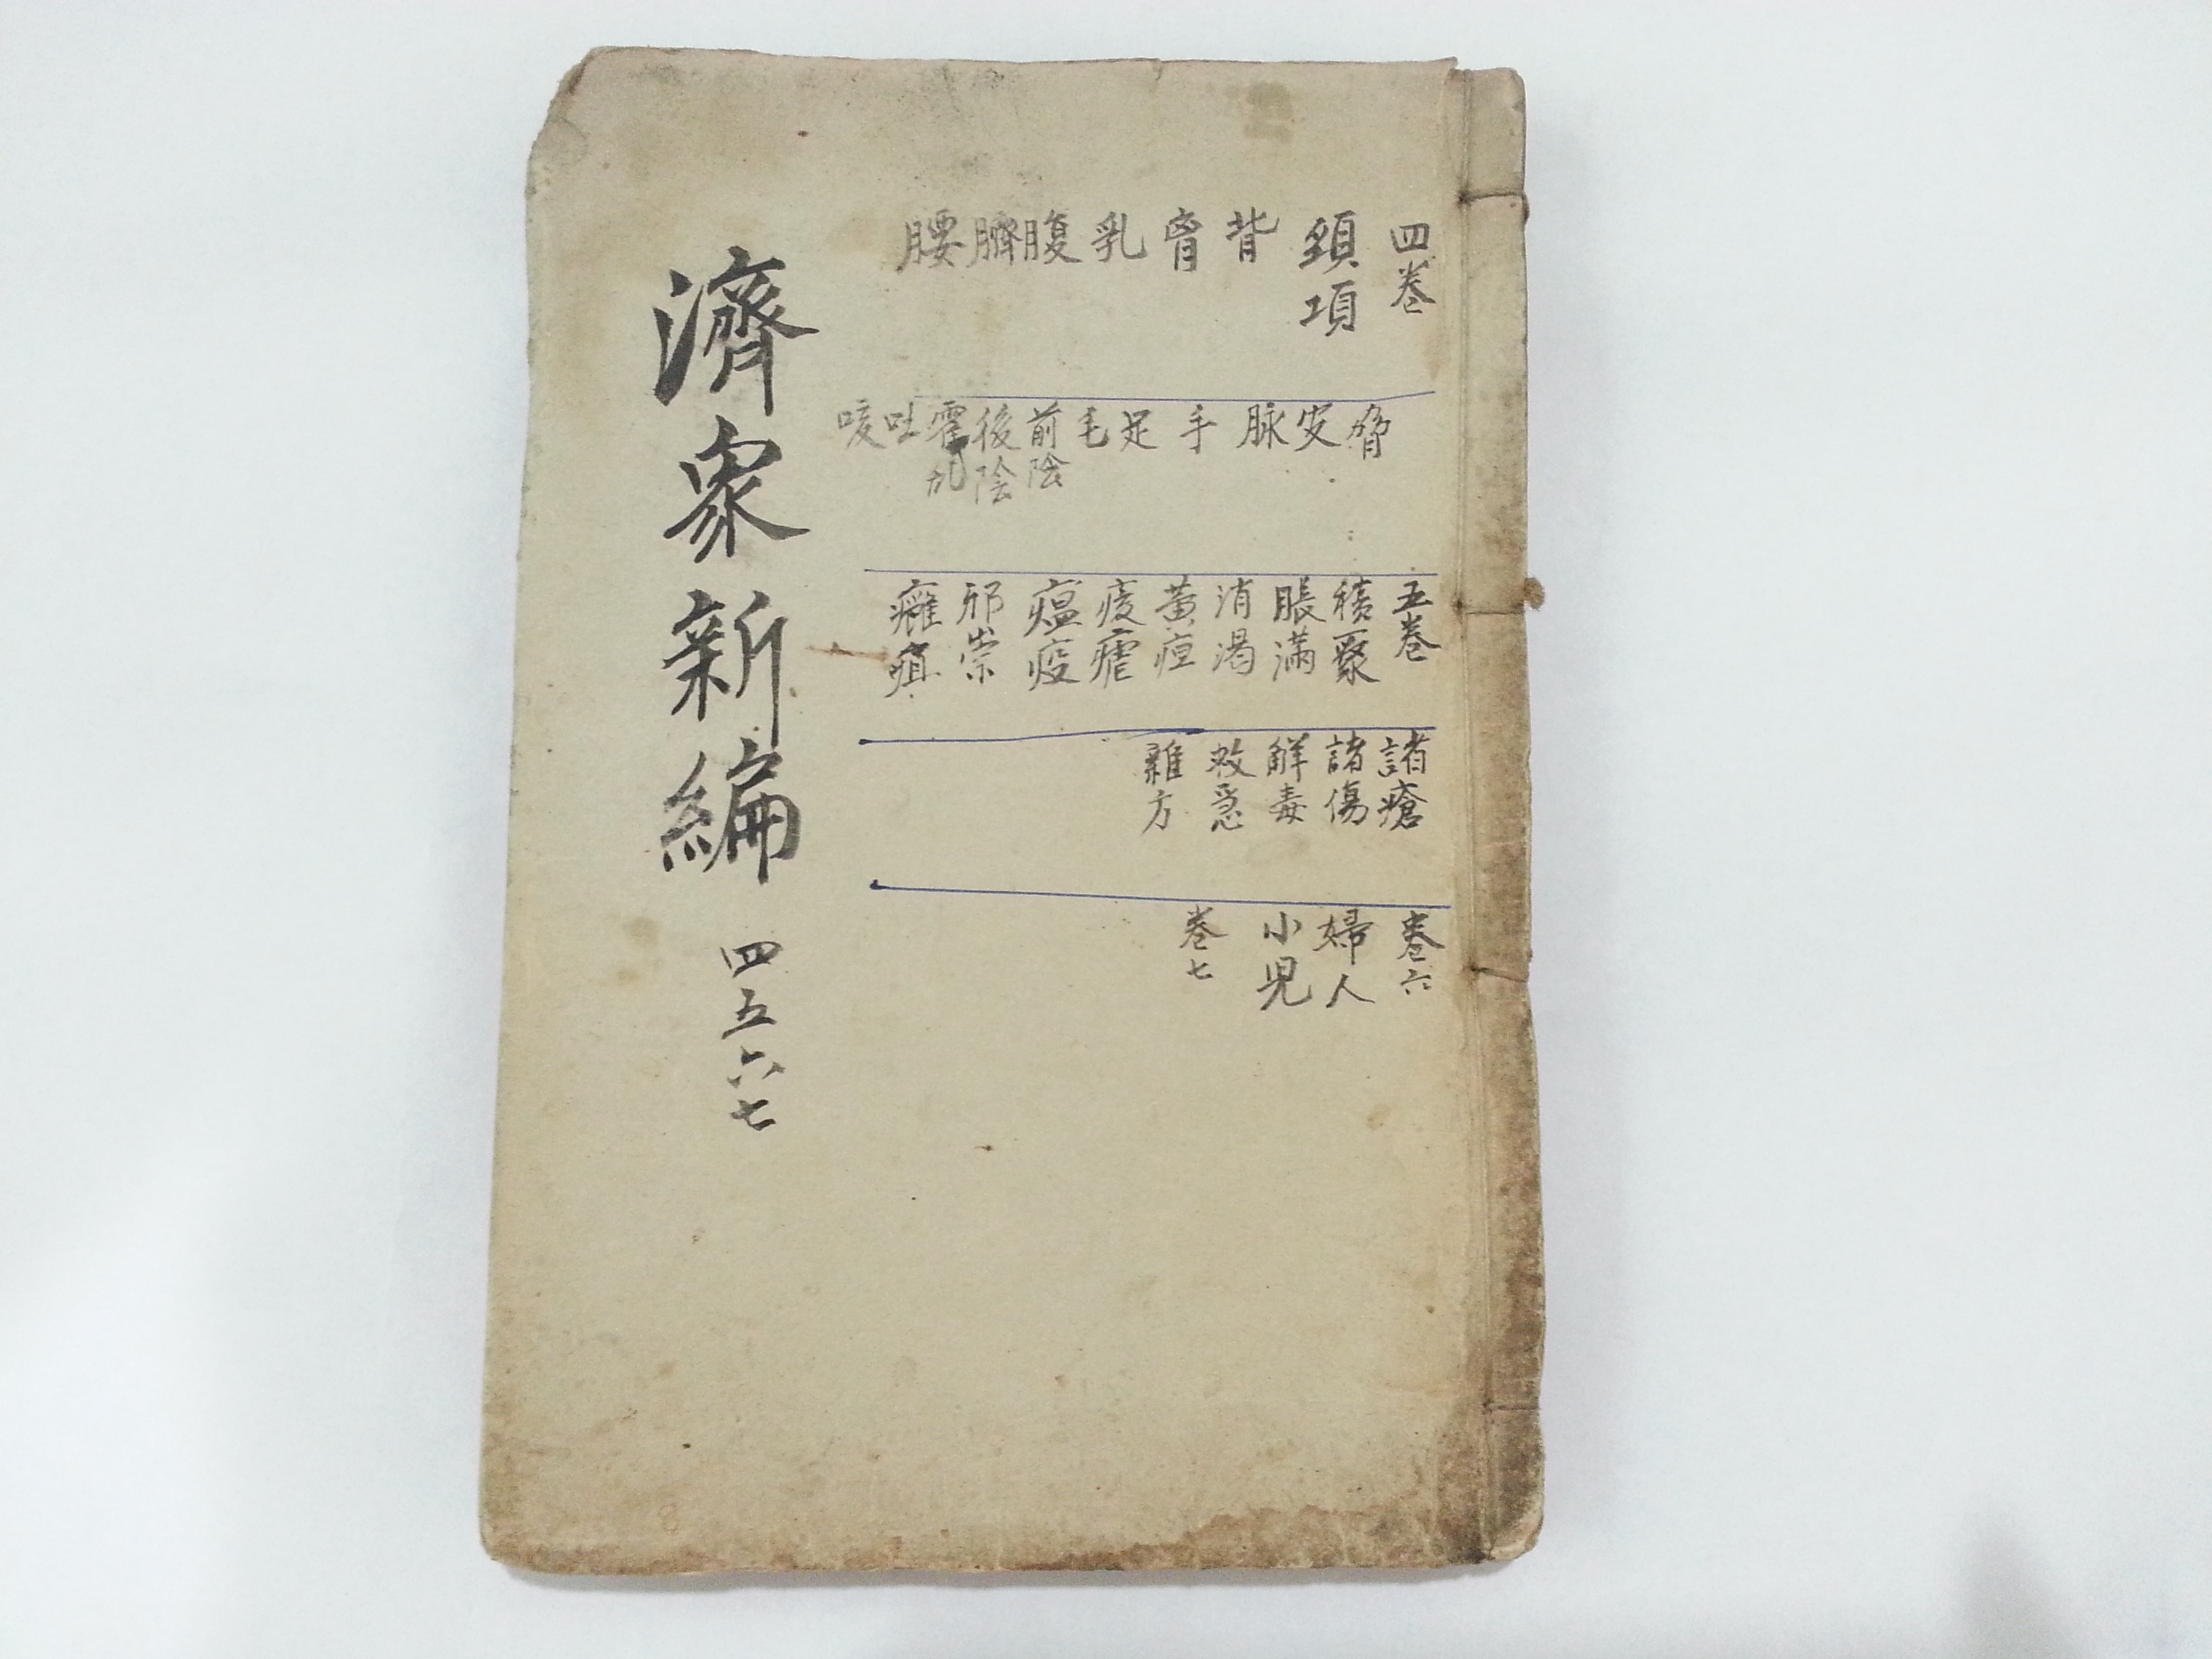 四巻
頸項
背
胷
乳
腹
臍
腰
脅
皮
脉
手
足
毛
前陰
後陰
霍乱
吐
咳
五巻
積聚
脹滿
消渴
黃疸
痎瘧
瘟疫
邪祟
癰疽
諸瘡
諸傷
解毒
救急
雜方
巻六
婦人
小児
巻七
濟衆新編 四五六七